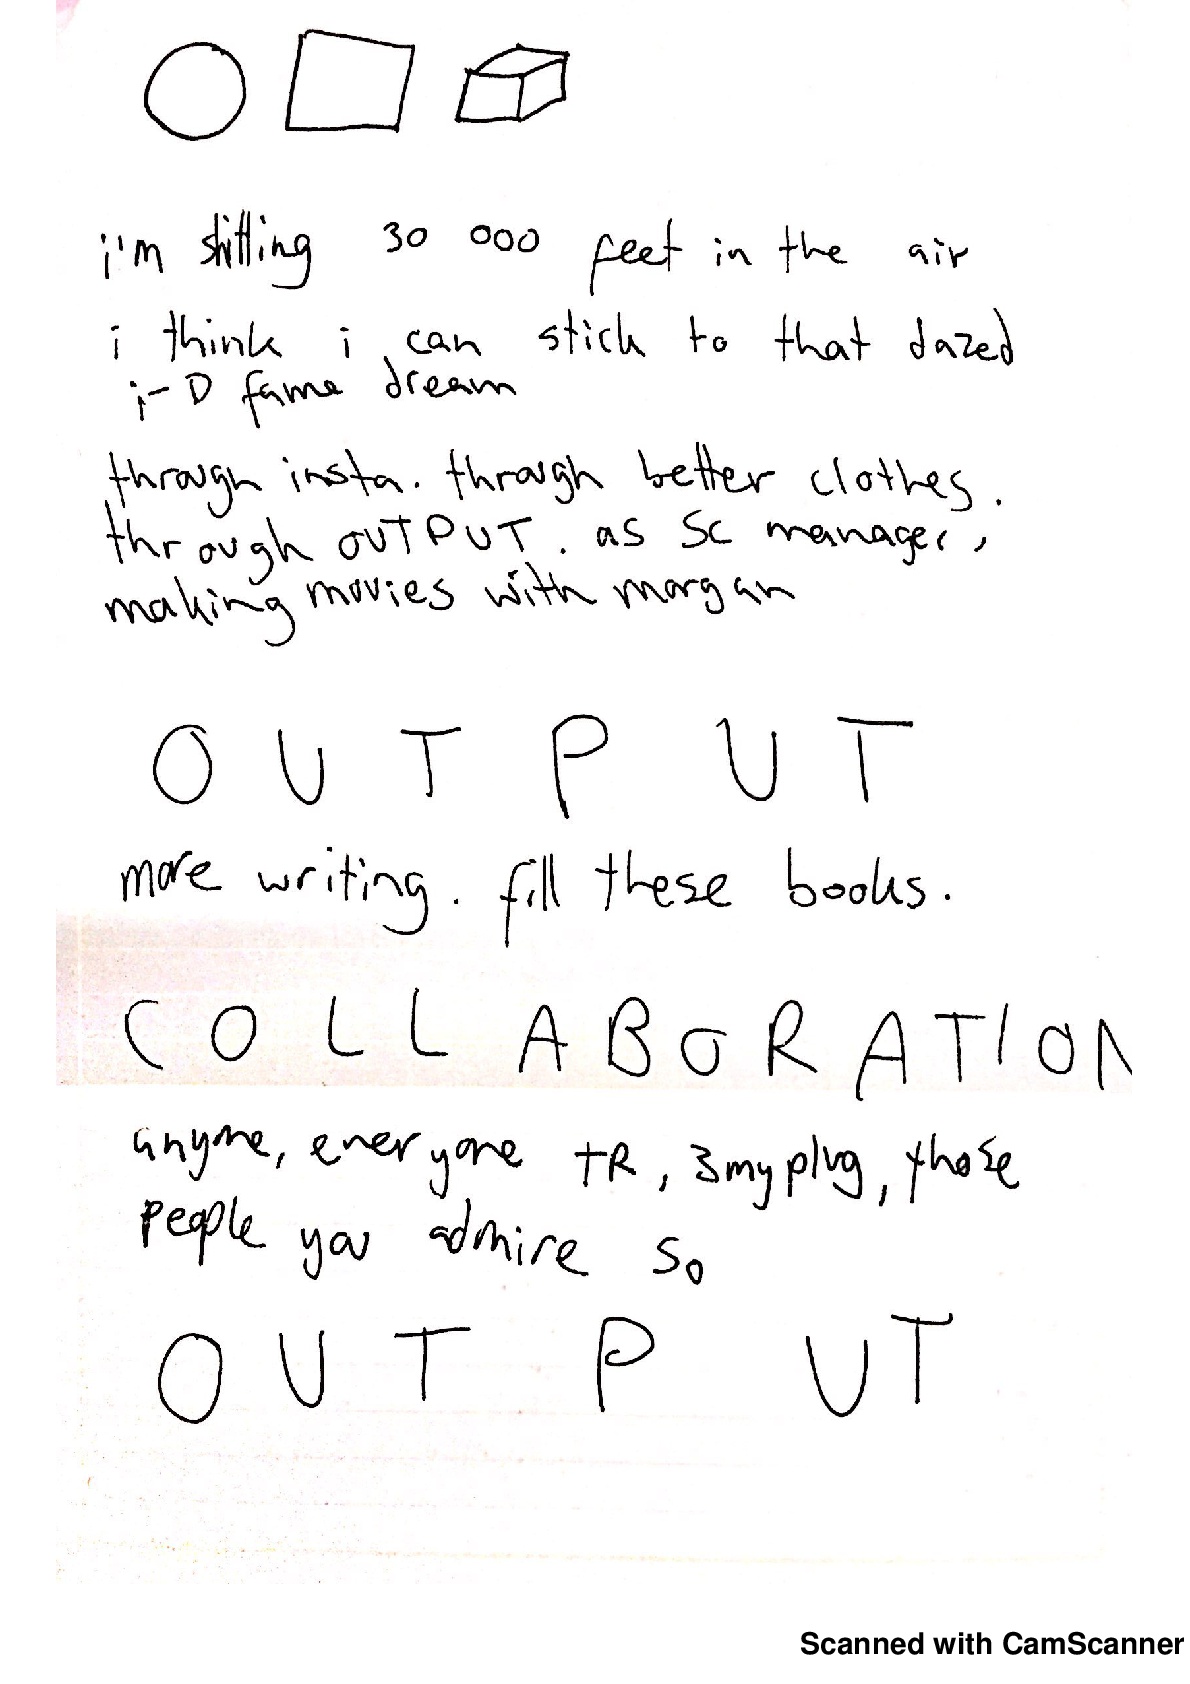 i'm shitting 30 000 feet in the air
i think i can stick to that dazed
i-D fame dream
through insta. through better clothes.
through OUTPUT. as SC manager,
making movies with morgan
O U T P U T
more writing. fill these books.
C O L L A B O R A T I O N
anyone, everyone TR, 3myplug, those
people you admire so
O U T P UT
Scanned with CamScanner